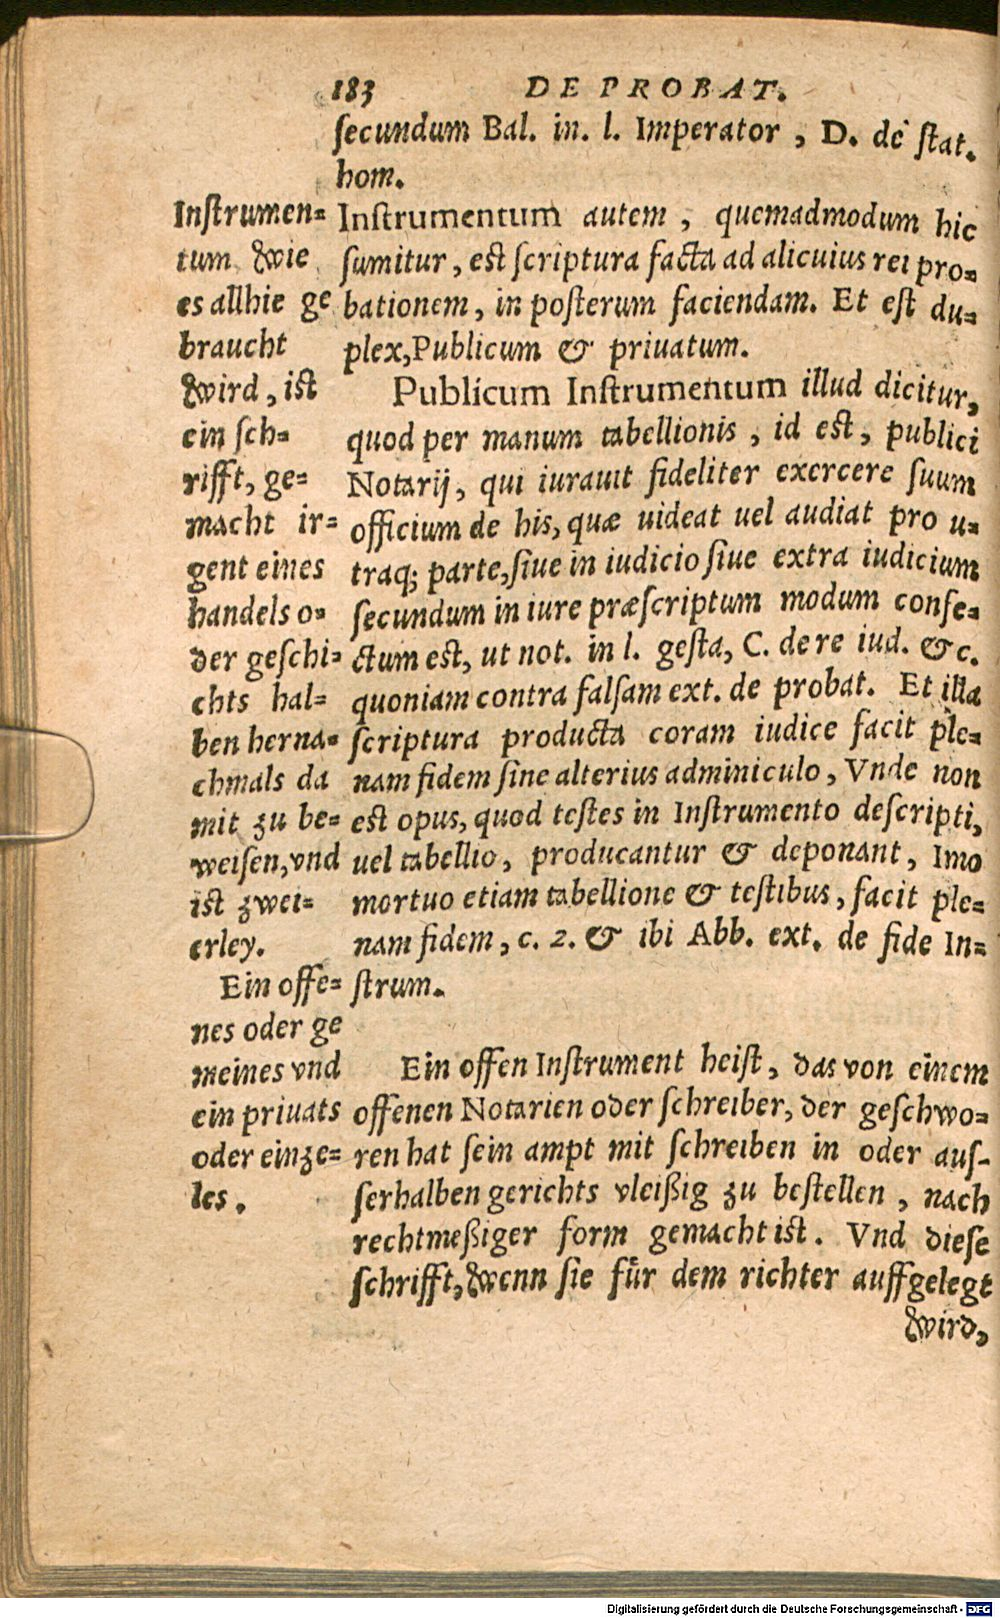 183 DE PROBAT.
ſecundum Bal. in. l. Imperator, D. de ſtat.
hom.
Inſtrumentum autem, quemadmodum hic
ſumitur, est ſcriptura facta ad alicuius rei pro-
bationem, in poſterum faciendam. Et eſt du-
plex, Publicum & priuatum.
Publicum Inſtrumentum illud dicitur,
quod per manum tabellionis, id est, publici
Notarij, qui iurauit fideliter exercere ſuum
officium de his, quæ uideat uel audiat pro u-
traq; parte, ſiue in iudicio ſiue extra iudicium
ſecundum in iure præſcriptum modum confe-
ctum est, ut not. in l. geſta, C. de re iud. &c.
quoniam contra falſam ext. de probat. Et illa
ſcriptura producta coram iudice facit ple-
nam fidem ſine alterius adminiculo, Vnde non
est opus, quod teſtes in Inſtrumento deſcripti,
uel tabellio, producantur & deponant, Imo
mortuo etiam tabellione & teſtibus, facit ple-
nam fidem, c. 2. & ibi Abb. ext. de fide In-
ſtrum.
Inſtrumen-
tum wie
es allhie ge
braucht
wird, ist
ein ſch-
rifft, ge-
macht ir-
gent eines
handels o-
der geſchi-
chts hal-
ben herna-
chmals da
mit zu be-
weiſen, vnd
ist zwei-
erley.
Ein offe-
nes oder ge
meines vnd
ein priuats
oder einze-
les.
Ein offen Inſtrument heiſt, das von einem
offenen Notarien oder ſchreiber, der geſchwo-
ren hat ſein ampt mit ſchreiben in oder auſ-
ſerhalben gerichts vleißig zu beſtellen, nach
rechtmeßiger form gemacht ist. Vnd dieſe
ſchrifft, wenn ſie für dem richter auffgelegt
wird,
Digitalisierung gefördert durch die Deutsche Forschungsgemeinschaft - DFG